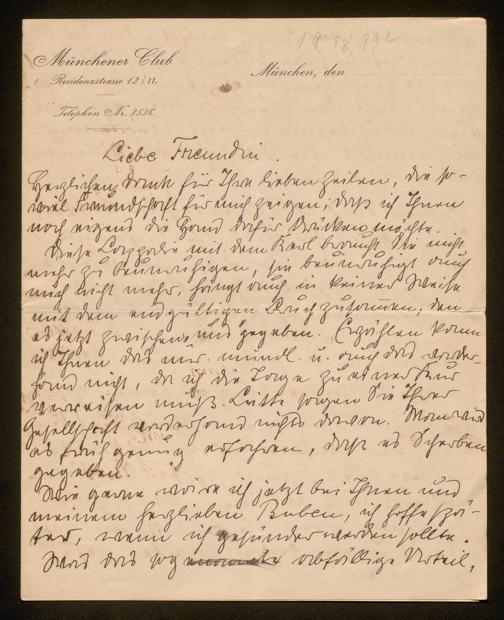 Münchener Club
Residenzstrasse 12/II.
München, den
Telephon Nr. 3536.
Liebe Freundin.
Herzlichen Dank für Ihre lieben Zeilen, die so-
viel Freundschaft für mich zeigen, daß ich Ihnen
noch eigens die Hand dafür drücken möchte.
Diese mit dem Kerl braucht Sie nicht
mehr zu beunruhigen, sie beunruhigt auch
mich nicht mehr, hängt auch in keiner Weise
mit dem endgültigen Bruch zusammen, den
es jetzt zwischen uns gegeben. Erzählen kann
ich Ihnen das nur mündl. u. auch das vorder-
hand nicht, da ich die Tage zu einer Kur
verreisen muß. Bitte sagen Sie Ihrer
Gesellschaft vorderhand nichts davon. Man wird
es früh genug erfahren, daß es Scherben
gegeben.
Wie gerne wäre ich jetzt bei Ihnen und
meinem herzlieben Buben, ich hoffe spä-
ter, wenn ich gesünder werden sollte.
Was das abfällige Urteil,